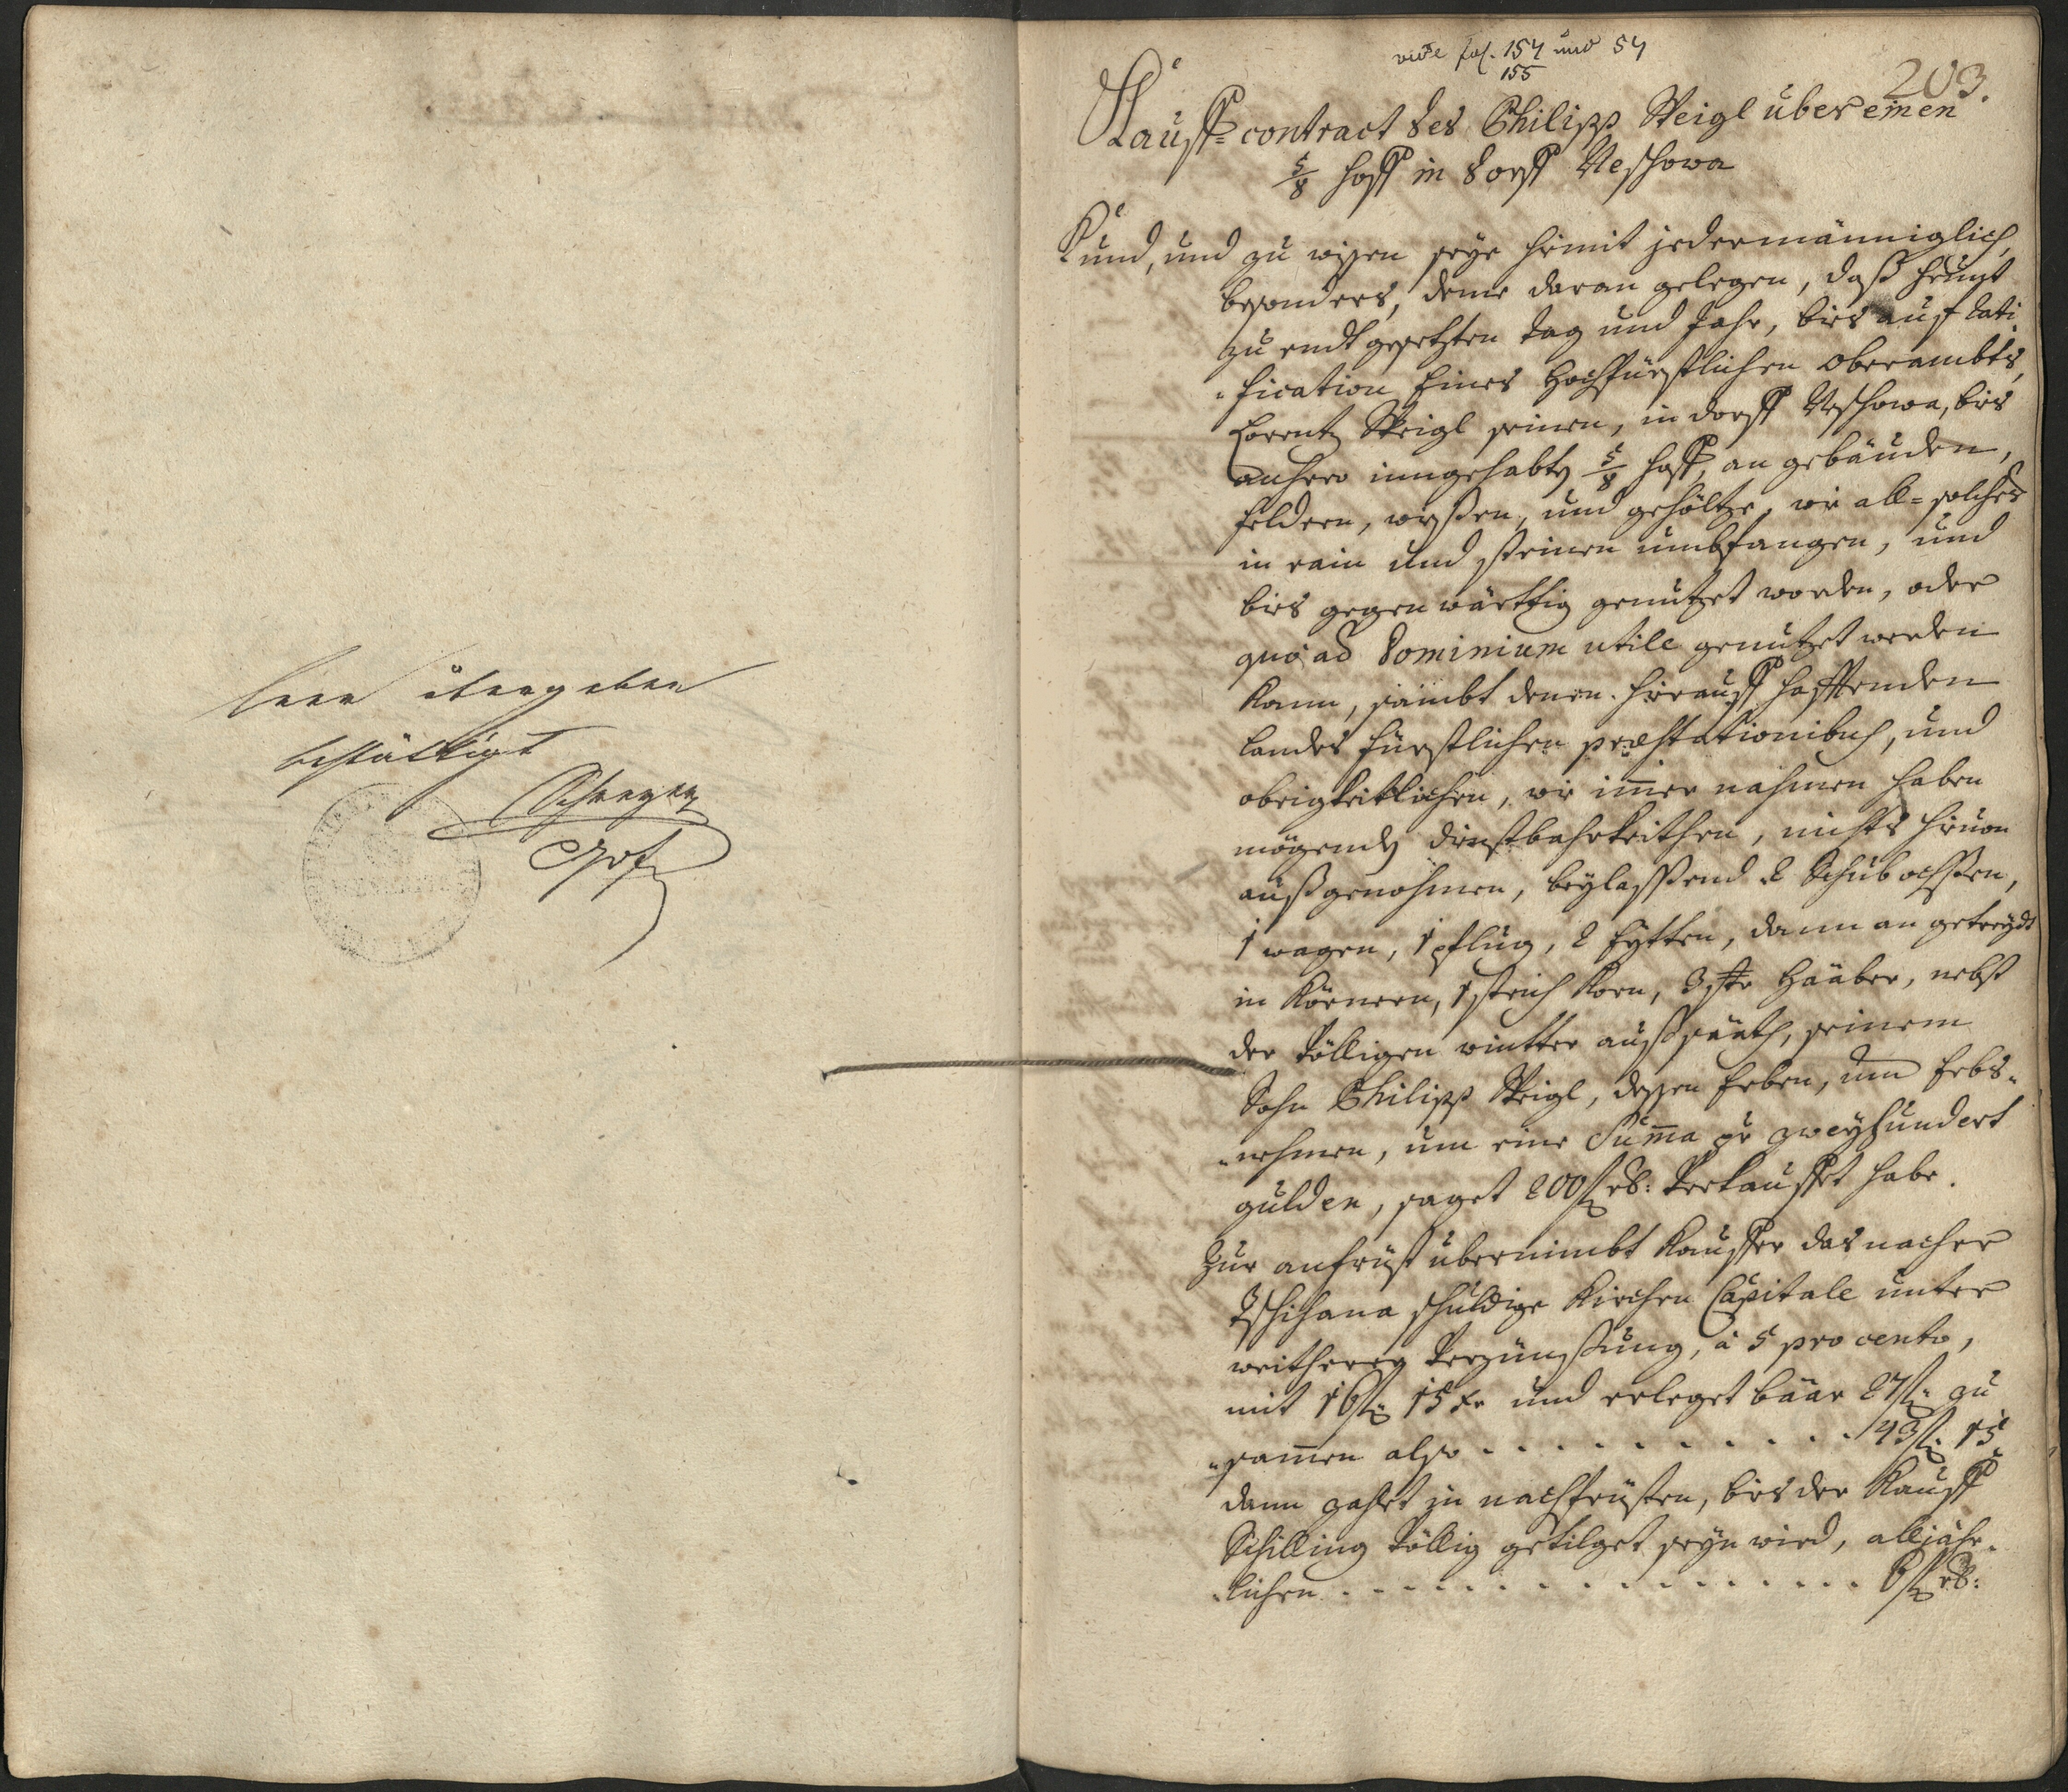 leer übergeben
bestättigt
vide fol. 154 und 54
155
203.
Kauff-contract des Philipp Steigl über einen
5/8 hoff in dorff Neschowa
Kund, und zu wißen seye hiemit jedermänniglich,
besonders, deme daran gelegen, daß heunt
zu endt gesetzten tag und Jahr, bies auf rati-
-fication Eines Hochfürstlichen Oberambts,
Lorentz Steigl seinen, in dorff Neschowa, bies
anhero inngehabten 5/8 hoff, an gebäuden,
feldern, wießen, und gehöltze, wie all-solches
in rain und steinen umbfangen, und
bies gegenwärttig genutzet worden, oder
quo ad Dominium utile genutzet werden
kann, sambt denen hierauff hafftenden
landes fürstlichen praestationibus, und
obrigkeitlichen, wie immer nahmen haben
mögenden dienstbahrkeithen, nichts hievon
außgenohmen, beylassend 2 Schubochsen,
1 wagen, 1 pflug, 2 Eytten, dann an getreydt
in Körnern, 1 strich Korn, 3 str Haaber, nebst
der völligen wintter außsaath, seinem
Sohn Philipp Steigl, deßen Erben, und Erbs-
-nehmen, um eine Summa pr zweyhundert
gulden, saget 200 fl rh: verkauffet habe.
Zur anfrist übernimbt Kauffer das nacher
Tschihana schuldige Kirchen Capitale unter
weitherer Verzünßung, à 5 pro cento,
mit 16 fl: 15 xr und erleget baar 27 fl: zu
-sammen also . . . . . . . . . . . 43 fl: 15
dann zahlet in nachfristen, bies der Kauff
Schilling völlig getilget seyn wird, alljähr-
-lichen . . . . . . . . . . . . . . . . 6 fl rh: